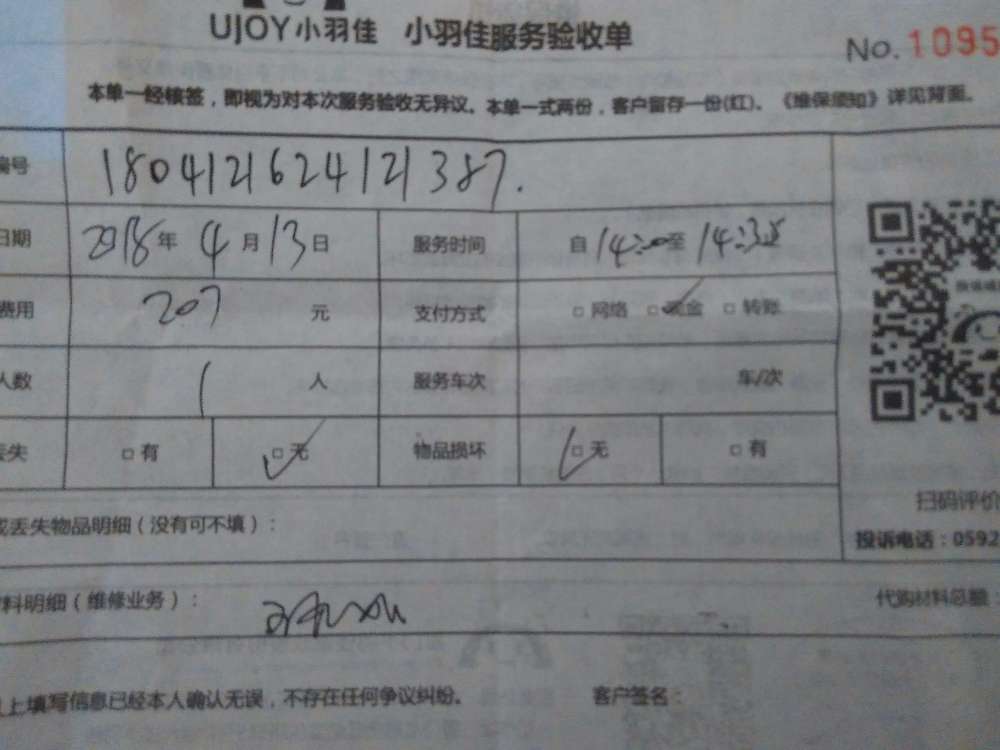 UJOY小羽佳 小羽佳服务验收单
No. 1095
本单一经接签，即视为对本次服务验收无异议。本单一式两份，客户留存一份(红)。《维保须知》详见背面。
编号 1804121624121387.
日期 2018年 4月 13日 服务时间 自 14:00至 14:35
费用 207 元 支付方式 □ 网络 □ 现金 □ 转账
人数 1 人 服务车次 车/次
丢失 □ 有 □ 无 物品损坏 □ 无 □ 有
或丢失物品明细（没有可不填）：
扫码评价
投诉电话：0592
料明细（维修业务）： 代购材料总额：
上填写信息已经本人确认无误，不存在任何争议纠纷。 客户签名：